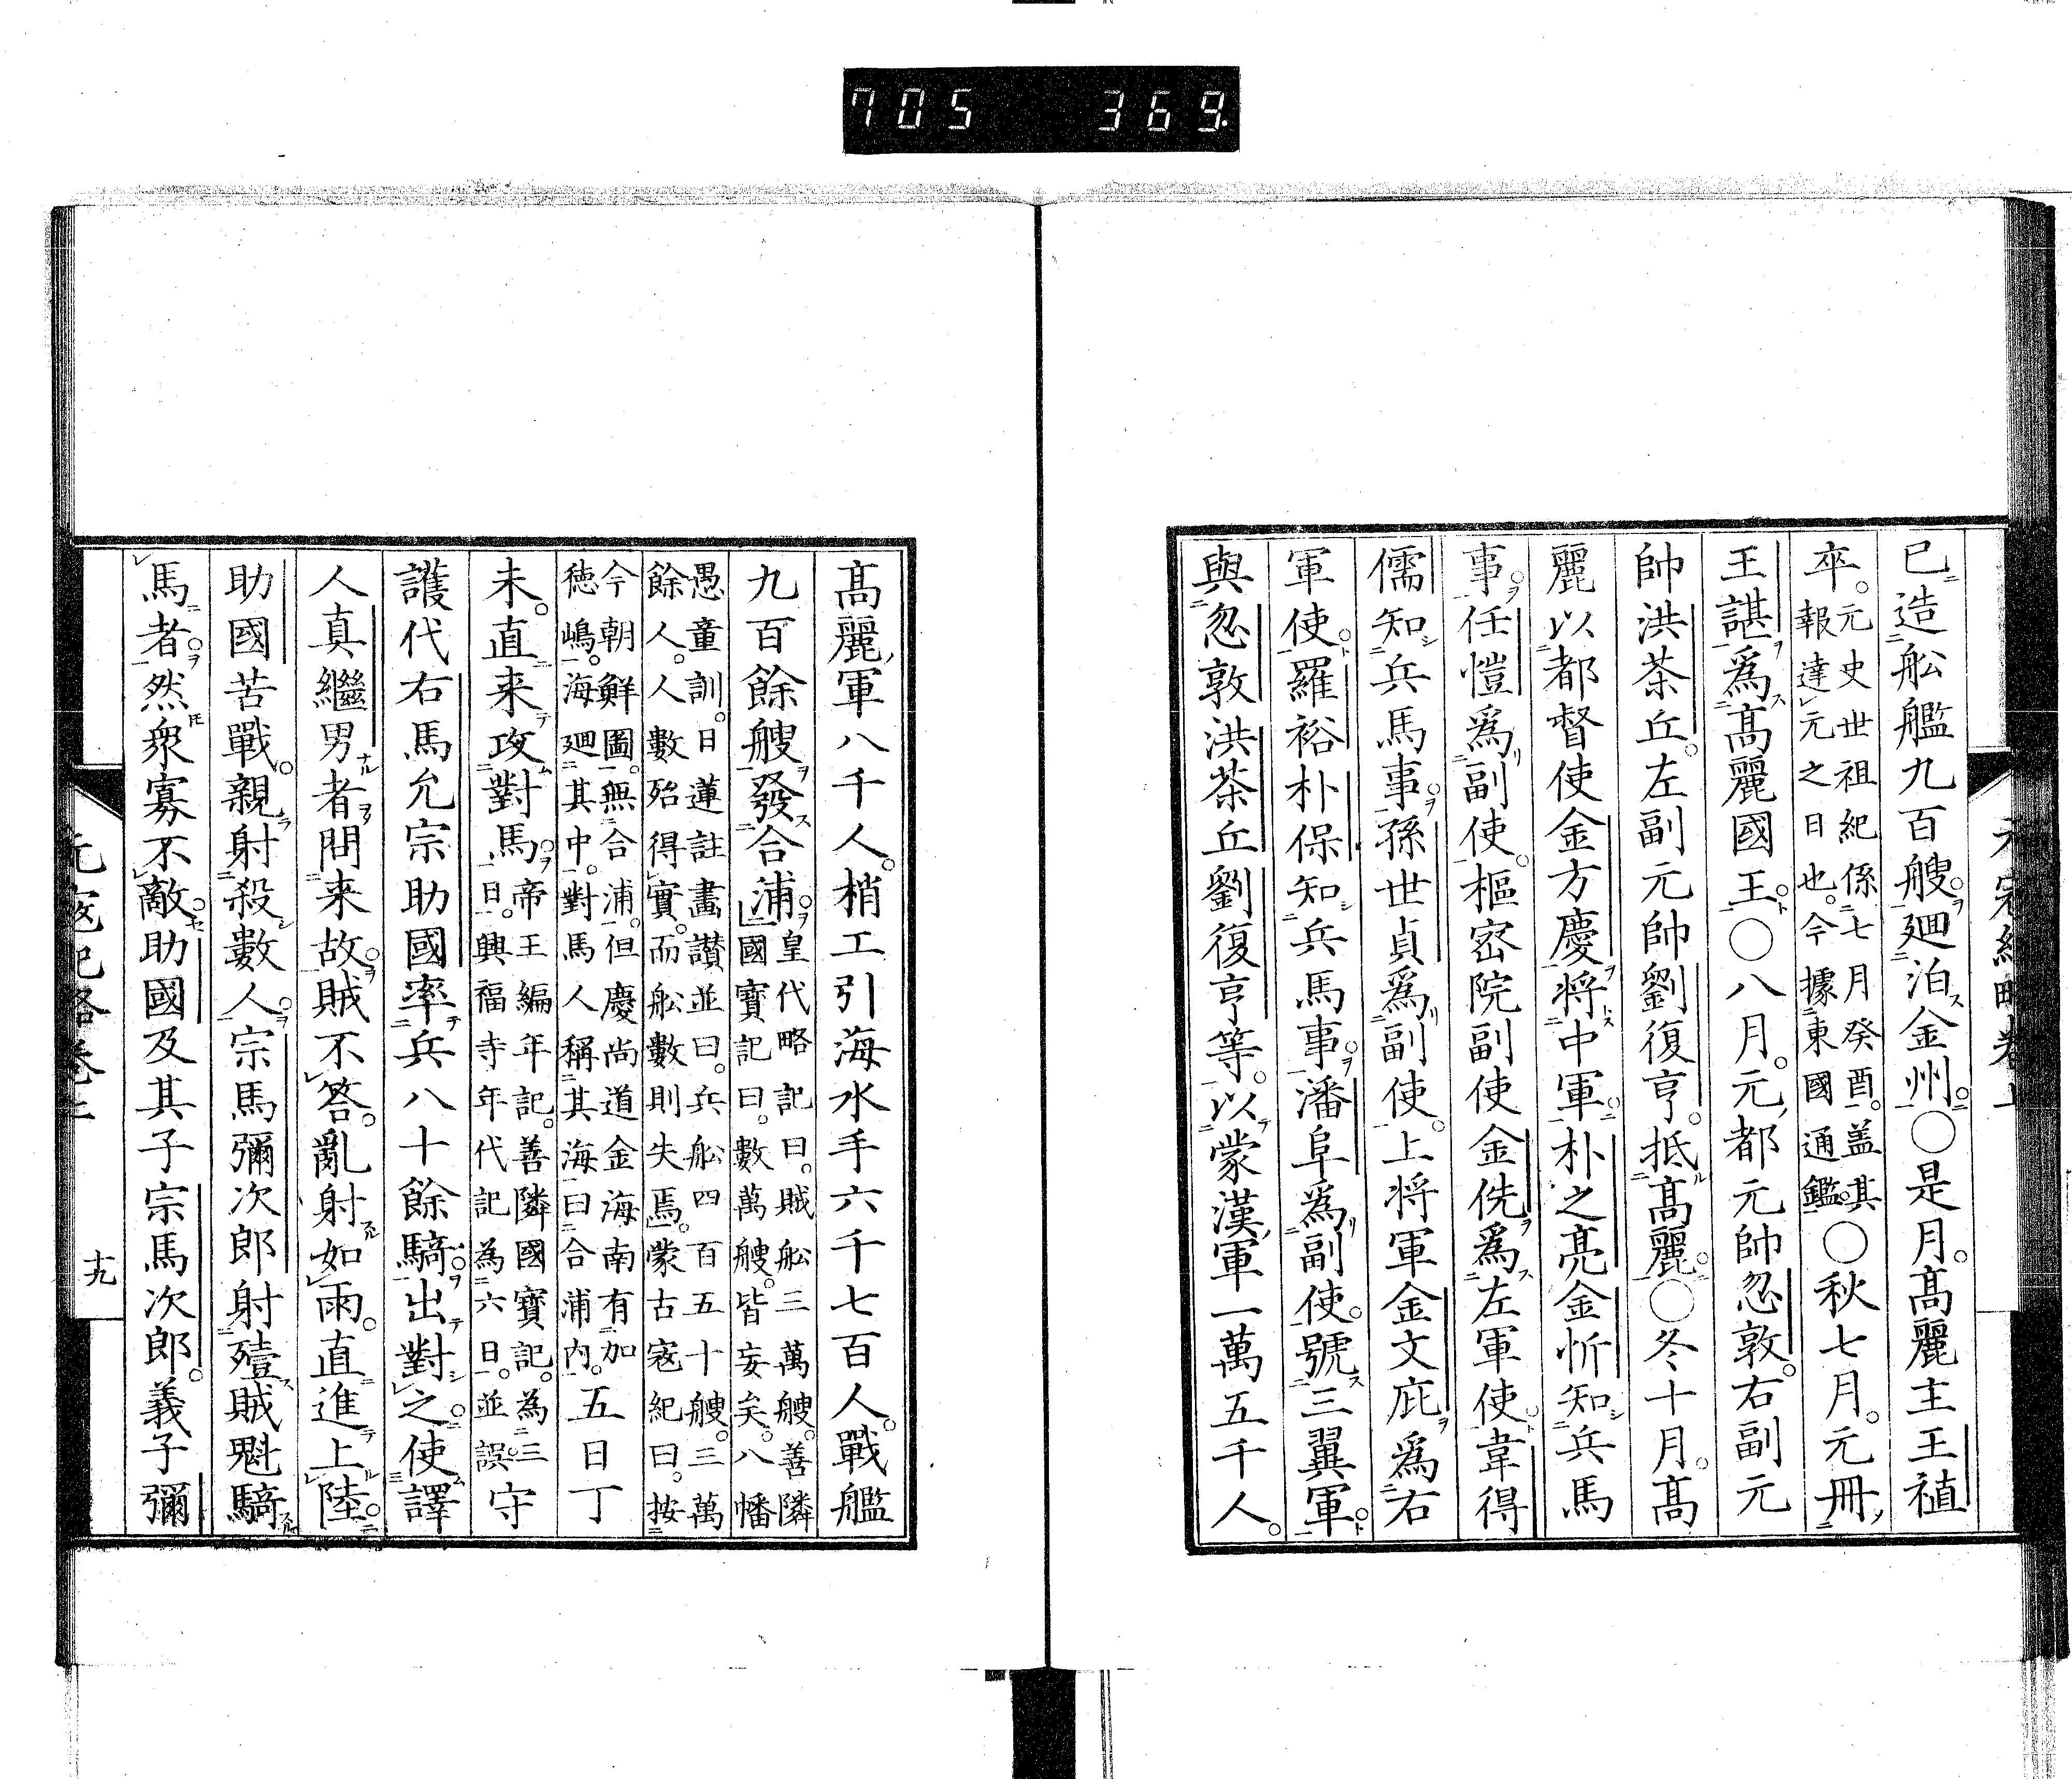 705 369
已造舩艦九百艘廻泊金州○是月高麗主王禃
卒元史世祖紀係七月癸酉盖其
報達元之日也今據東國通鑑○秋七月元冊
王諶爲高麗國王○八月元都元帥忽敦右副元
帥洪茶丘左副元帥劉復亨抵高麗○冬十月高
麗以都督使金方慶將中軍朴之亮金忻知兵馬
事任愷爲副使樞密院副使金侁爲左軍使韋得
儒知兵馬事孫世貞爲副使上將軍金文庇爲右
軍使羅裕朴保知兵馬事潘阜爲副使號三翼軍
與忽敦洪茶丘劉復亨等以蒙漢軍一萬五千人
高麗軍八千人梢工引海水手六千七百人戰艦
九百餘艘發合浦皇代略記曰賊舩三萬艘善隣
國寶記曰數萬艘皆妄矣八幡
愚童訓日蓮註畫讃並曰兵舩四百五十艘三萬
餘人人數殆得實而舩數則失焉蒙古寇紀曰按
今朝鮮圖無合浦但慶尚道金海南有加
徳嶋海廻其中對馬人稱其海曰合浦内五日丁
未直来攻對馬帝王編年記善隣國寶記為三
日興福寺年代記為六日並誤守
護代右馬允宗助國率兵八十餘騎出對之使譯
人真繼男者問来故賊不答亂射如雨直進上陸
助國苦戰親射殺數人宗馬彌次郎射殪賊魁騎
馬者然衆寡不敵助國及其子宗馬次郎義子彌
元寇紀略卷上
十九